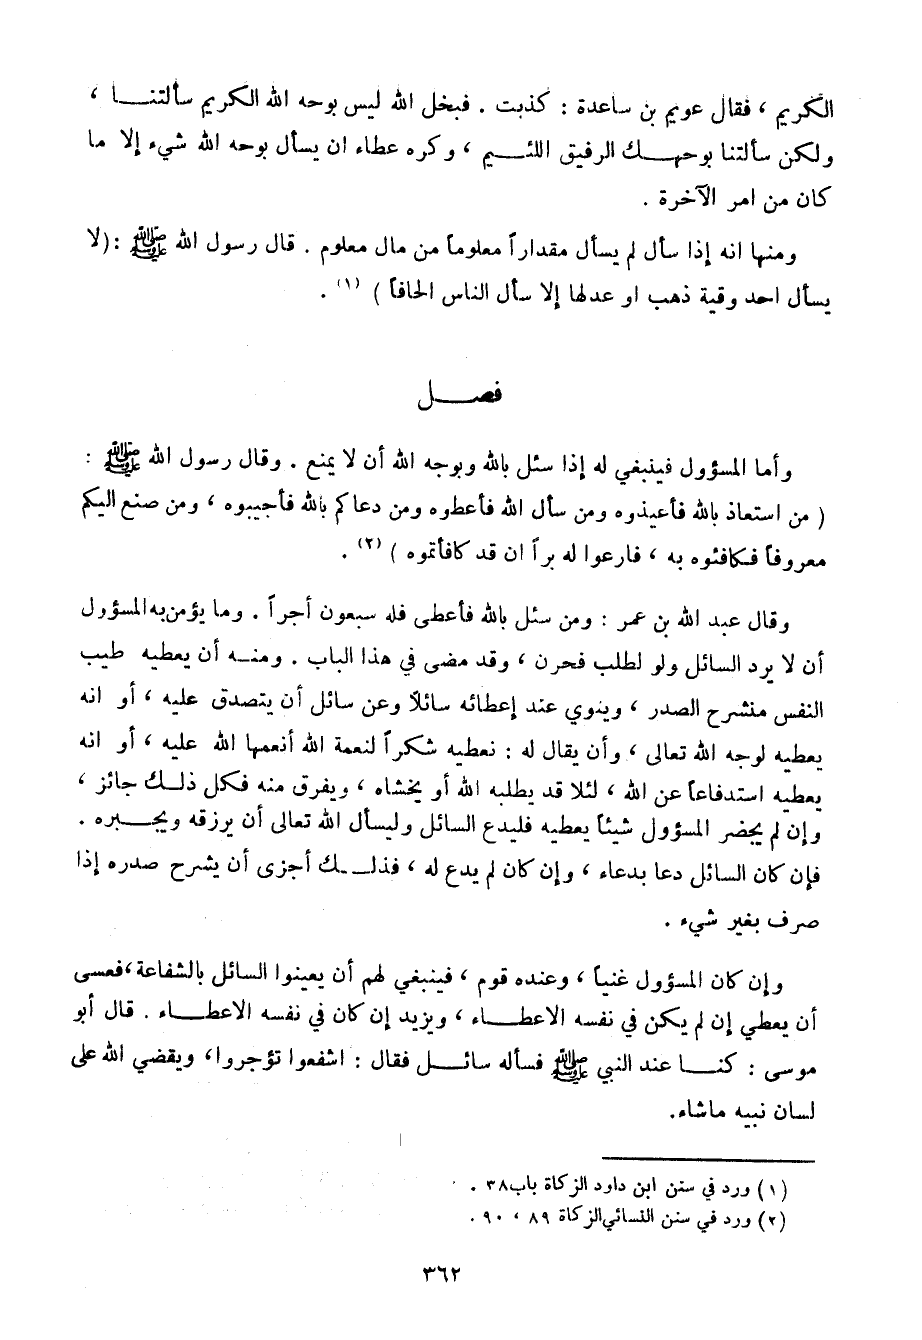 الكريم ، فقال عويم بن ساعدة : كذبت . فبخل الله ليس بوجه الله الكريم سألتنــا ،
ولكن سألتنا بوجهــك الرفيق اللئــيم ، وكره عطاء ان يسأل بوجه الله شيء إلا ما
كان من امر الآخرة .
ومنها انه إذا سأل لم يسأل مقداراً معلوماً من مال معلوم . قال رسول الله ﷺ :(لا
يسأل احد وقية ذهب او عدلها إلا سأل الناس الحافاً ) (١) .
فصــل
وأما المسؤول فينبغي له إذا سئل بالله وبوجه الله أن لا يمنع . وقال رسول الله ﷺ :
( من استعاذ بالله فأعيذوه ومن سأل الله فأعطوه ومن دعاكم بالله فأجيبوه ، ومن صنع اليكم
معروفاً فكافئوه به ، فارعوا له براً ان قد كافأتموه ) (٢) .
وقال عبد الله بن عمر : ومن سئل بالله فأعطى فله سبعون أجراً . وما يؤمن به المسؤول
أن لا يرد السائل ولو لطلب فحرن ، وقد مضى في هذا الباب . ومنــه أن يعطيه طيب
النفس منشرح الصدر ، وينوي عند إعطائه سائلاً وعن سائل أن يتصدق عليه ، أو انه
يعطيه لوجه الله تعالى ، وأن يقال له : نعطيه شكراً لنعمة الله أنعمها الله عليه ، أو انه
يعطيه استدفاعاً عن الله ، لئلا قد يطلبه الله أو يخشاه ، ويفرق منه فكل ذلــك جائز ،
وإن لم يحضر المسؤول شيئاً يعطيه فليدع السائل وليسأل الله تعالى أن يرزقه ويجــبره .
فإن كان السائل دعا بدعاء ، وإن كان لم يدع له ، فذلــك أجزى أن يشرح صدره إذا
صرف بغير شيء .
وإن كان المسؤول غنياً ، وعنده قوم ، فينبغي لهم أن يعينوا السائل بالشفاعة ، فعسى
أن يعطي إن لم يكن في نفسه الاعطــاء ، ويزيد إن كان في نفسه الاعطــاء . قال أبو
موسى : كنــا عند النبي ﷺ فسأله سائــل فقال : اشفعوا تؤجروا، ويقضي الله على
لسان نبيه ماشاء.
(١) ورد في سنن ابن داود الزكاة باب٣٨ .
(٢) ورد في سنن النسائي الزكاة ٨٩ ، ٩٠ .
٣٦٢